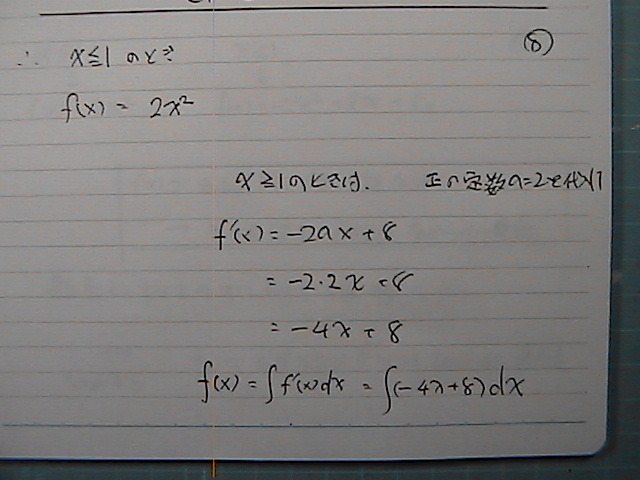 ∴ x≦1 のとき ⑧
f(x) = 2x²
x≧1のときは. 正の定数a=2を代入
f'(x) = -2ax + 8
= -2・2x + 8
= -4x + 8
f(x) = ∫f'(x)dx = ∫(-4x+8)dx